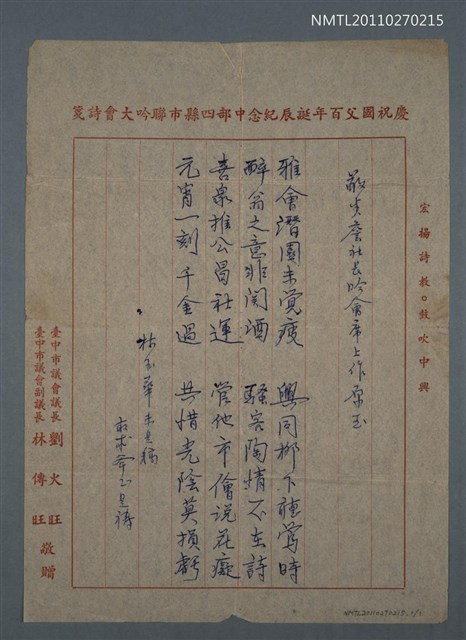 NMTL20110270215
慶祝國父百年誕辰紀念中部四縣市聯吟大會詩箋
宏揚詩教。鼓吹中興
社長吟會席上作原玉
雅會潛園未覺疲 興同柳下聽鶯時
醉翁之意非關酒 騷客陶情不在詩
喜氣推公昌社運 管他市儈說花癡
元宵一刻千金過 共惜光陰莫損虧
林玉華未是稿
臺中市議會議長 劉火旺
臺中市議會副議長 林傳旺 敬贈
NMTL20110270215. 1/1